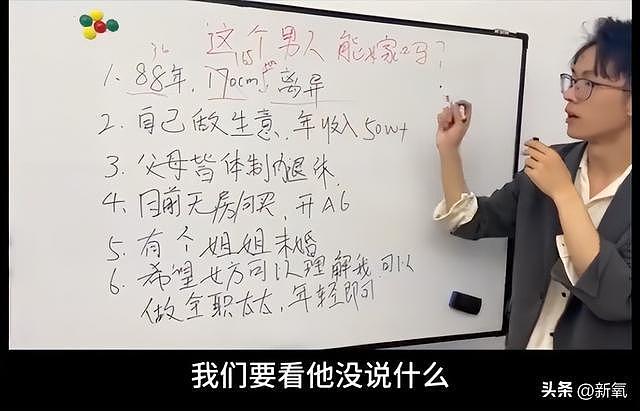 这个男人能嫁吗?
36
165
1. 88年, 170cm, 离异
2. 自己做生意, 年收入50w+
3. 父母皆体制内退休
4. 目前无房可买, 开A6
5. 有个姐姐未婚
6. 希望女方可以理解我, 可以
做全职太太, 年轻即可
我们要看他没说什么
头条 @新氧